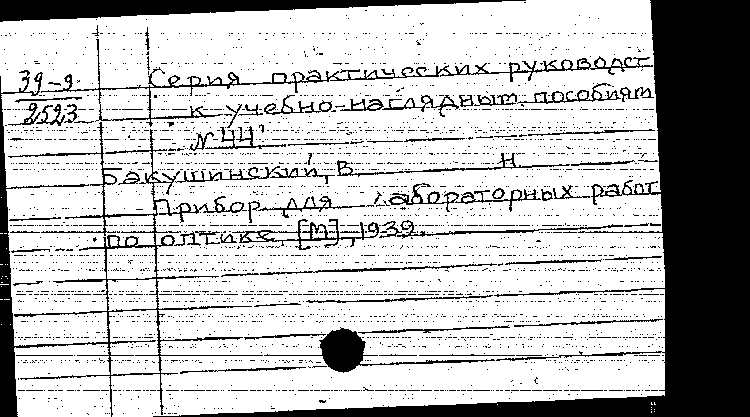 39-9
2523
Серия практических руководст
к учебно-наглядным пособиям
№ 44.
Бакушинский, В. Н
Прибор для лабораторных работ
по оптике. [М], 1939.